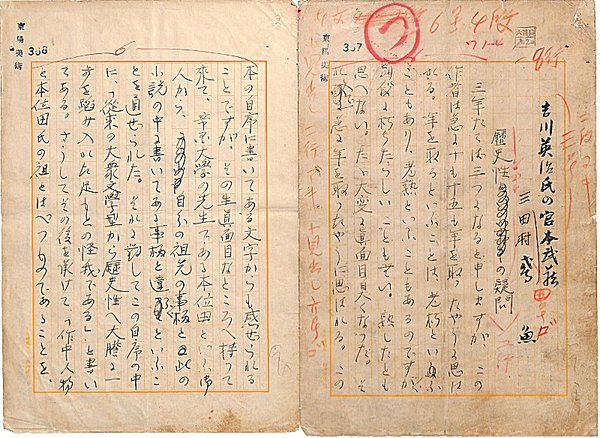 6年4段
吉川英治氏の宮本武蔵
歴史性の疑問
三田村 鳶魚
三年たてば三つになると申しますが、この
作者は急に十も十五も年を取つたやうに思は
れる。年を取るといふことは、老朽といふ
こともあり、老熟といふこともあるのですが、
朽ちたらしいこともない。熟したとも
思へない。たゞ大変に真面目臭くなつた。そ
れが急に年を取つたやうに思はれる。この
東陽美術
367
本の自序に書いてある文字からも感ぜられる
ことですが、その生真面目なところへ持つて
来て、大学の先生である本位田といふ御
人から、自分の祖先の事柄と、此の
小説の中に書いてある事柄と違ふといふこ
とを通ぜられた。それに対してこの自序の中
に、「従来の大衆文学型から歴史性へ大胆に一
歩を踏み入れた足もとの怪我である」と書い
てある。さうしてその後を承けて、「作中人物
と本位田氏の祖とはべつものであることを、
東陽美術
368